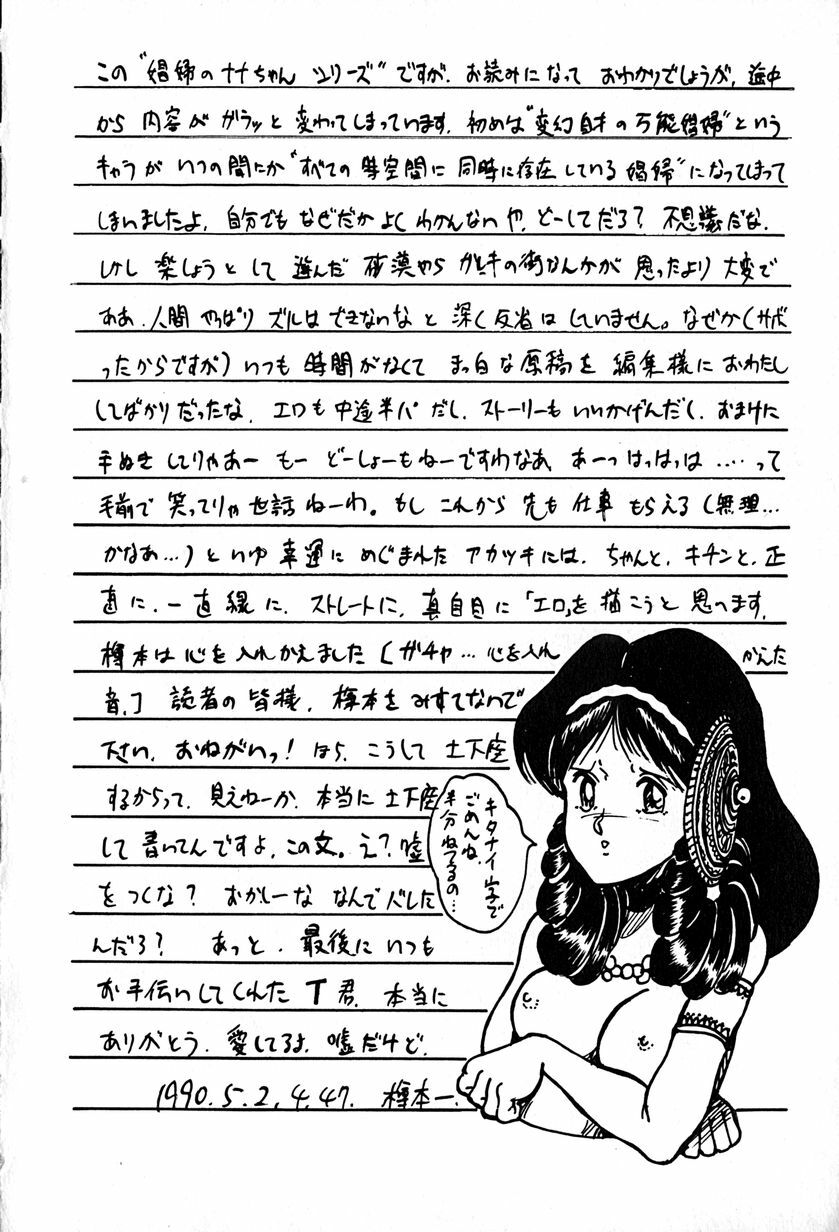 この"娼婦のナナちゃんシリーズ"ですが、お読みになって おわかりでしょうが、途中
から 内容が ガラッと 変わってしまっています。初めは"変幻自才の万能娼婦"という
キャラが いつの間にか"すべての時空間に 同時に存在している娼婦"になってしまって
しまいましたよ。自分でも なぜだか よく わかんないや。どーしてだろ? 不思議だな。
しかし 楽しようとして 選んだ 砂漠やら ガレキの街なんかが 思ったより 大変で
ああ、人間 やっぱり ズルは できないな と 深く 反省は していません。なぜか(サボ
ったからですが)いつも 時間がなくて まっ白な 原稿を 編集様に おわたし
してばかりだったな。エロも 中途半パ だし、ストーリーも いいかげんだし、おまけに
手ぬき してりゃあー もー どーしょーもねーですわなあ、あーっ はっはっは‥‥って
手前で 笑ってりゃ 世話ねーわ。もし これから 先も 仕事 もらえる(無理…
かなあ…)といゆ 幸運に めぐまれた アカツキには、ちゃんと、キチンと、正
直に、一直線に、ストレートに、真自目に「エロ」を 描こうと 思へます。
樽本は 心を 入れかえました[ガチャ…心を入れ かえた
音。] 読者の 皆様、樽本を みすてないで
下さい、おねがいっ! ほら、こうして 土下座
するからって、見えねーか、本当に 土下座
して 書いてんですよ、この文。え? 嘘
をつくな? おかしーな なんで バレした
んだろ? あっと、最後に いつも
お手伝いしてくれた T君、本当に
ありがとう、愛してるよ、嘘だけど。
1990.5.2.4.47. 樽本一.
キタナイ字で
ごめんね、
半分ねてるの…